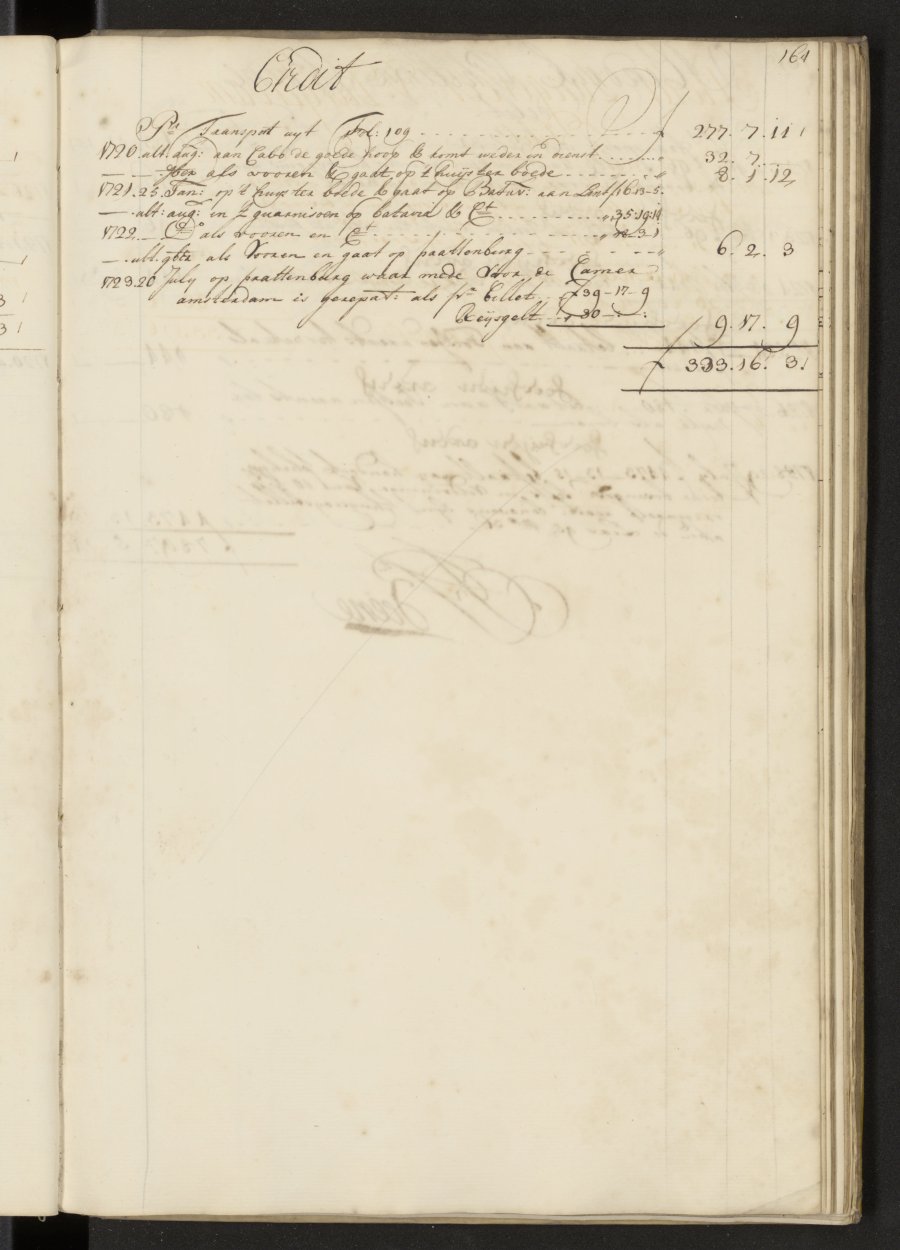 164
Credit
P.r Transport uyt Fol: 109 . . . . . f 277. 7. 11
1720. ult. aug: aan Cabo de goede hoop & komt weder in dienst . . . . . " 32. 7. —
— — — xber als vooren & gaat op 't huijs ter boede . . . . . " 8. 1. 12
1721. 23. Jan: op 't huijs ter boede & gaat op Batav: aan Lant f 16-13-5.
— ult: aug: in 't guarnisoen op batavia & Ct . . . . . " 35-19-11
1722. — do als vooren en Ct . . . . .
— . ult. gbr als Vooren en gaat op paattenburg . . . . . " 6. 2. 3
1723. 20 July op paattenburg waar mede Voor de Camer
amsterdam is gerepat: als pr billet . . f 39-17-9
Reijsgelt . . " 30 - :
9. 17. 9
f 333. 16. 3.